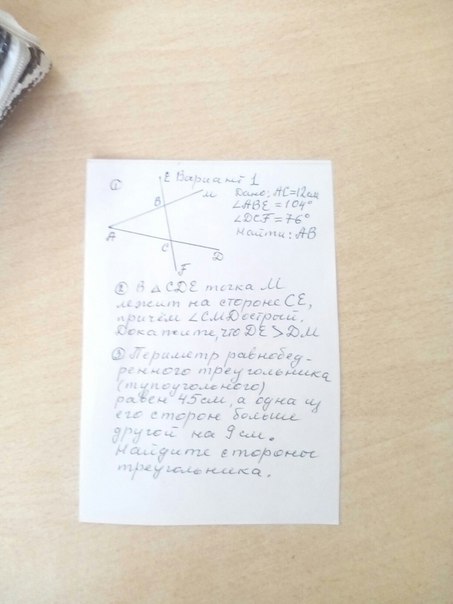 ① Вариант 1
E
M
B
A
C
D
F
Дано: AC=12см
∠ABE=104°
∠DCF=76°
Найти: AB
② В △CDE точка M
лежит на стороне CE,
причём ∠CMD острый.
Докажите, что DE>DM
③ Периметр равнобед-
ренного треугольника
(тупоугольного)
равен 45см, а одна из
его сторон больше
другой на 9см.
Найдите стороны
треугольника.